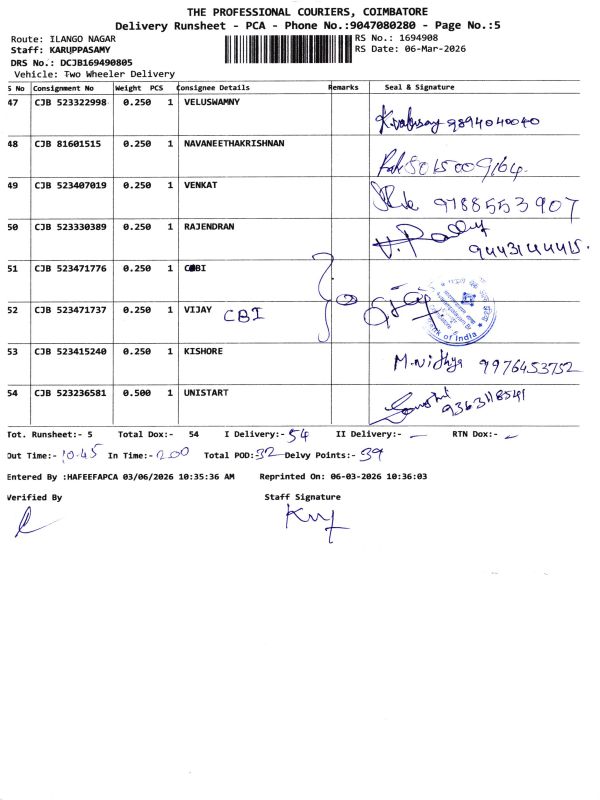 THE PROFESSIONAL COURIERS, COIMBATORE
Delivery Runsheet - PCA - Phone No.:9047080280 - Page No.:5
Route: ILANGO NAGAR RS No.: 1694908
Staff: KARUPPASAMY RS Date: 06-Mar-2026
DRS No.: DCJB169490805
Vehicle: Two Wheeler Delivery
S No Consignment No Weight PCS Consignee Details Remarks Seal & Signature
47 CJB 523322998 0.250 1 VELUSWAMNY 9894040040
48 CJB 81601515 0.250 1 NAVANEETHAKRISHNAN
49 CJB 523407019 0.250 1 VENKAT 9788553907
50 CJB 523330389 0.250 1 RAJENDRAN
51 CJB 523471776 0.250 1 CBI
52 CJB 523471737 0.250 1 VIJAY CBI
Bank of India
53 CJB 523415240 0.250 1 KISHORE M.Nidhya 9976453752
54 CJB 523236581 0.500 1 UNISTART 9363118541
Tot. Runsheet:- 5 Total Dox:- 54 I Delivery:- 54 II Delivery:- — RTN Dox:- —
Out Time:- 10.45 In Time:- 2.00 Total POD:- 32 Delvy Points:- 39
Entered By :HAFEEFAPCA 03/06/2026 10:35:36 AM Reprinted On: 06-03-2026 10:36:03
Verified By Staff Signature